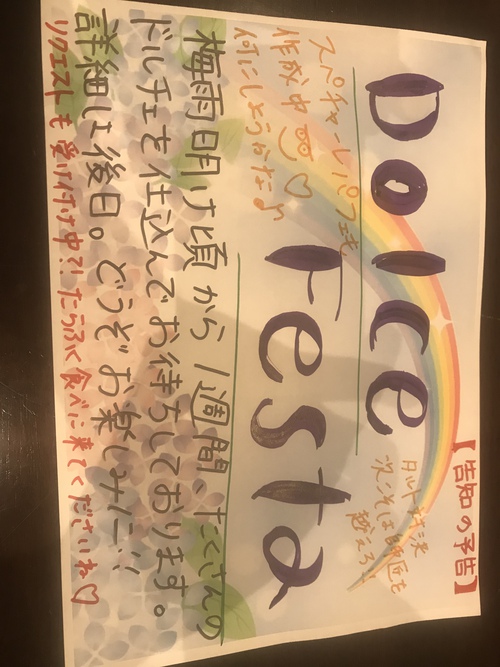 【告知の予告】
Dolce
次こそは師匠を
超えろ!
Festa
スペチャーレパフェも
作成中♡
何にしようかな♪
梅雨明け頃から1週間、たくさんの
ドルチェを仕込んでお待ちしております。
詳細は後日。どうぞお楽しみに!!
リクエストも受け付け中?!たらふく食べに来てくださいね♡